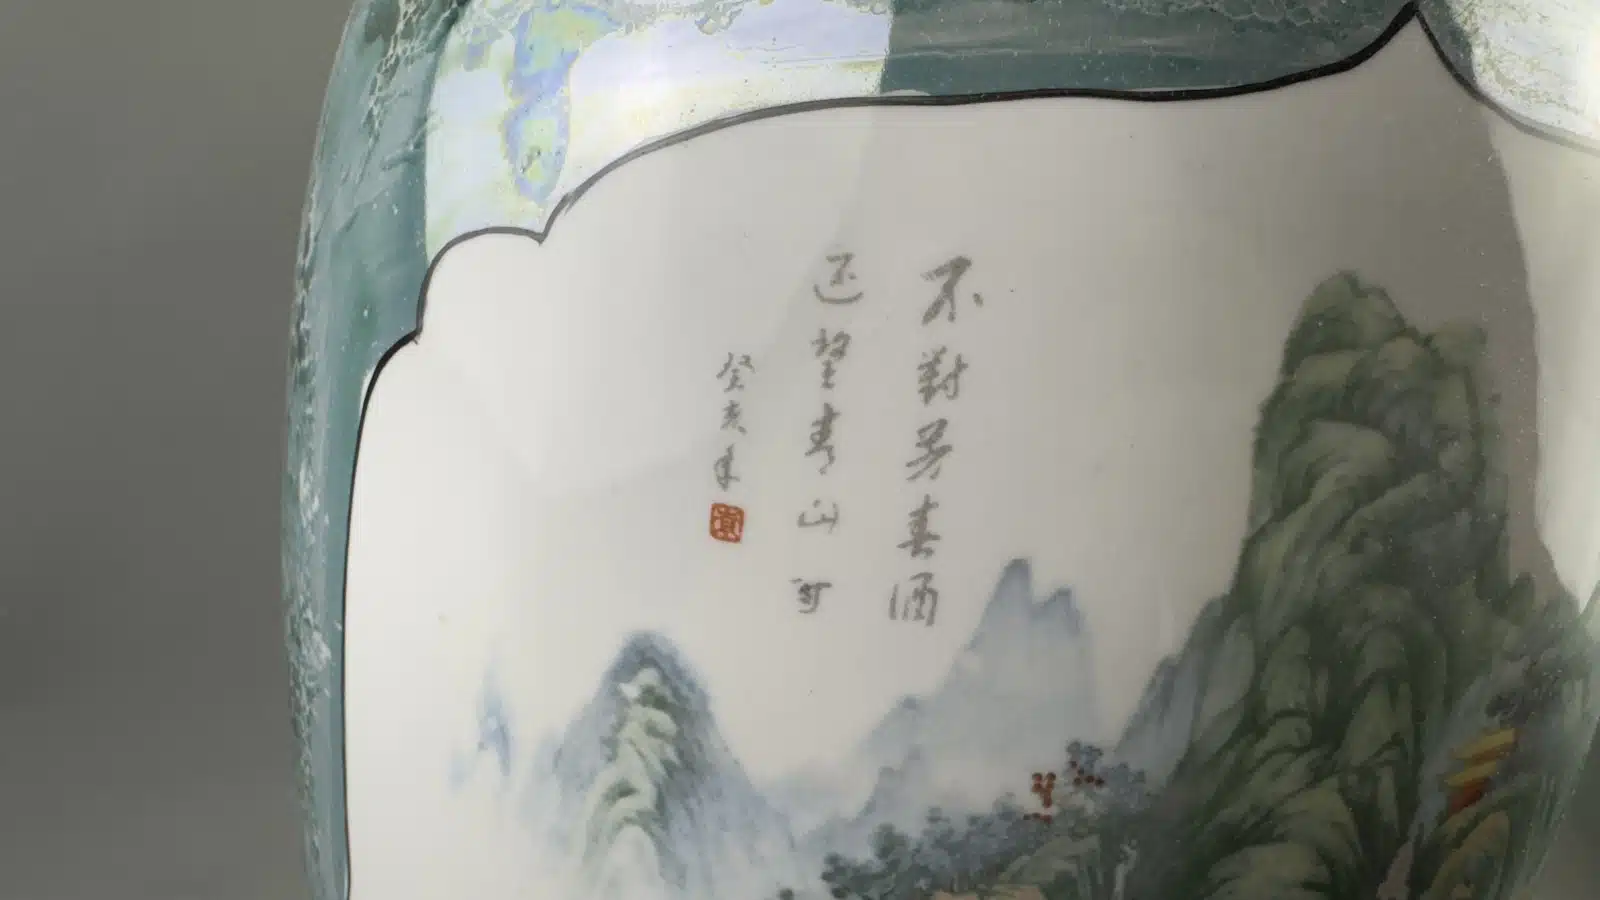 不對芳春酒
還望青山可
癸亥年